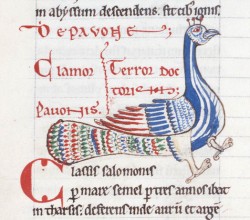 in abyssum descendens. et cognis,
De pavone
Clamor
Terror doc
toris
Pavonis
Classis salomonis
per mare semel per tres annos ibat
in tharsis. deferens inde aurum et argen